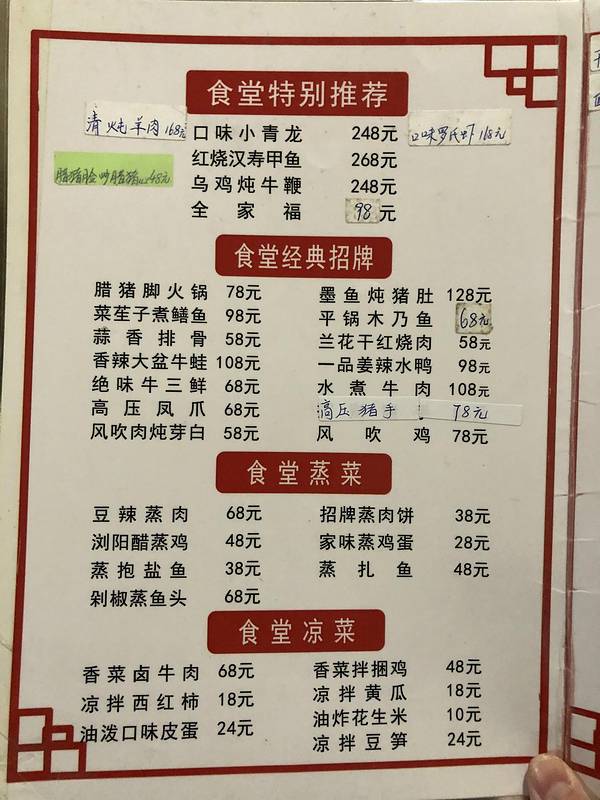 食堂特别推荐
清炖羊肉 168元
口味小青龙 248元
口味罗氏虾 168元
红烧汉寿甲鱼 268元
腊猪脸炒腊猪 48元
乌鸡炖牛鞭 248元
全家福 98元
食堂经典招牌
腊猪脚火锅 78元 墨鱼炖猪肚 128元
菜苼子煮鳝鱼 98元 平锅木乃鱼 68元
蒜香排骨 58元 兰花干红烧肉 58元
香辣大盆牛蛙 108元 一品姜辣水鸭 98元
绝味牛三鲜 68元 水煮牛肉 108元
高压凤爪 68元 高压猪手 78元
风吹肉炖芽白 58元 风吹鸡 78元
食堂蒸菜
豆辣蒸肉 68元 招牌蒸肉饼 38元
浏阳醋蒸鸡 48元 家味蒸鸡蛋 28元
蒸抱盐鱼 38元 蒸扎鱼 48元
剁椒蒸鱼头 68元
食堂凉菜
香菜卤牛肉 68元 香菜拌捆鸡 48元
凉拌西红柿 18元 凉拌黄瓜 18元
油泼口味皮蛋 24元 油炸花生米 10元
凉拌豆笋 24元